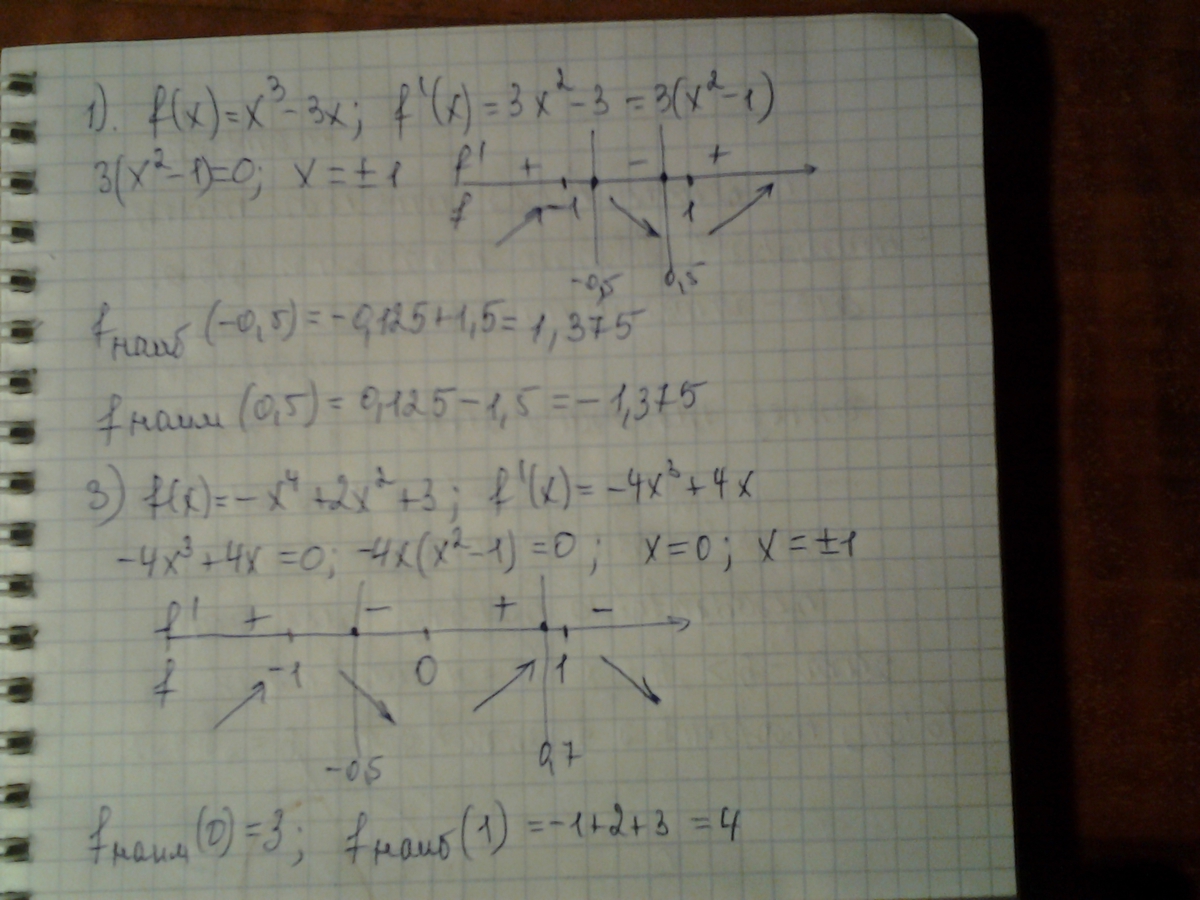 1). f(x)=x³-3x; f'(x)=3x²-3=3(x²-1)
3(x²-1)=0; x=±1 f' + - +
f -1 1
-0,5 0,5
fнаиб(-0,5)=-0,125+1,5=1,375
fнаим(0,5)=0,125-1,5=-1,375
3) f(x)=-x⁴+2x²+3; f'(x)=-4x³+4x
-4x³+4x=0; -4x(x²-1)=0; x=0; x=±1
f' + - + -
f -1 0 1
-0,5 0,7
fнаим(0)=3; fнаиб(1)=-1+2+3=4